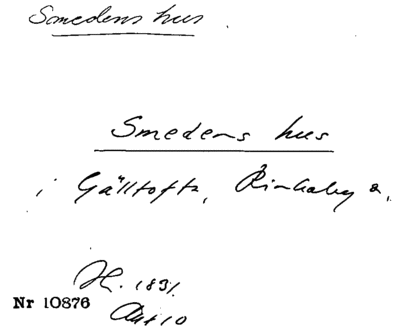 Smedens hus.
Smedens hus
i Gälltofta, Rinkaby s.
H. 1831.
Nr 10876
Akt 10